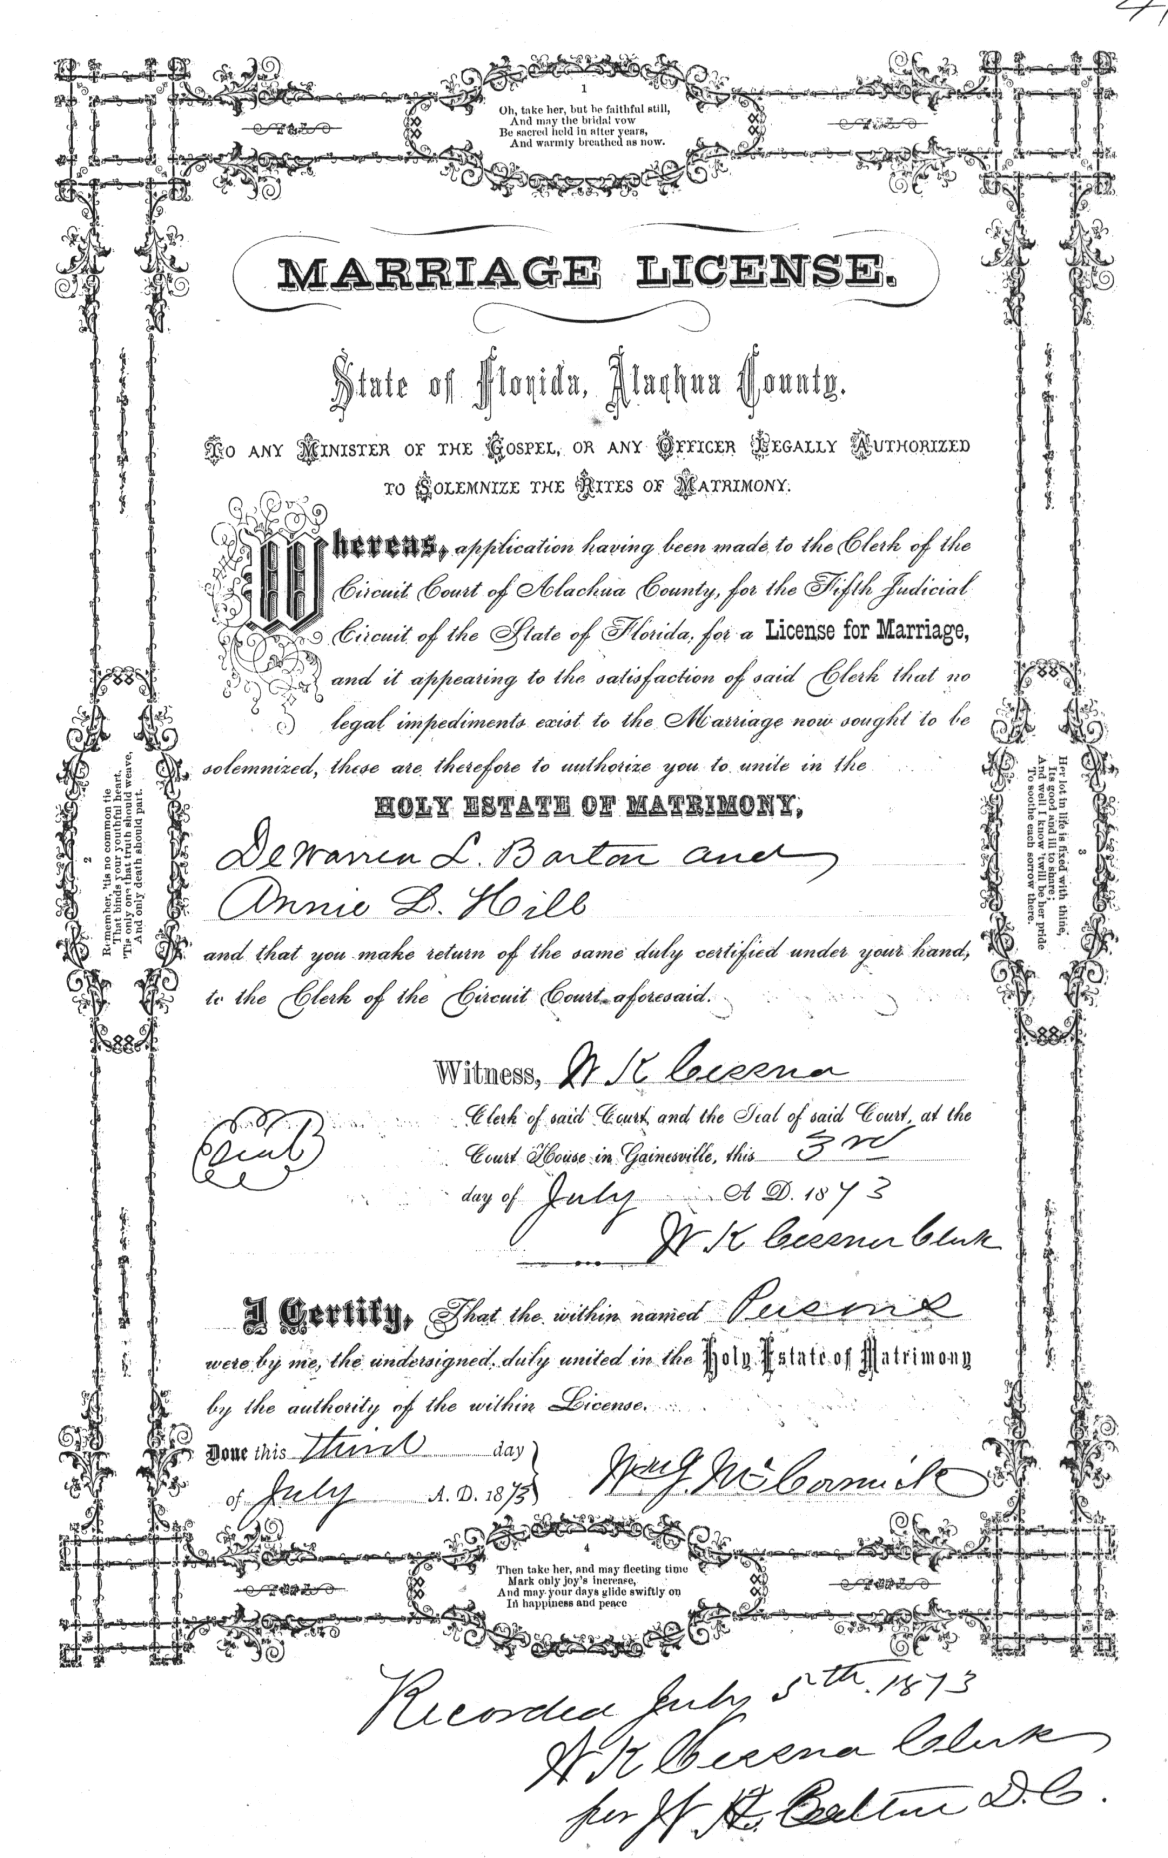 1
Oh, take her, but be faithful still,
And may the bridal vow
Be sacred held in after years,
And warmly breathed as now.
MARRIAGE LICENSE.
State of Florida, Alachua County.
TO ANY MINISTER OF THE GOSPEL, OR ANY OFFICER LEGALLY AUTHORIZED
TO SOLEMNIZE THE RITES OF MATRIMONY:
Whereas, application having been made to the Clerk of the
Circuit Court of Alachua County, for the Fifth Judicial
Circuit of the State of Florida, for a License for Marriage,
and it appearing to the satisfaction of said Clerk that no
legal impediments exist to the Marriage now sought to be
solemnized, these are therefore to authorize you to unite in the
HOLY ESTATE OF MATRIMONY,
DeWarren L. Barton and
Annie D. Hill
and that you make return of the same duly certified under your hand,
to the Clerk of the Circuit Court aforesaid.
2
Remember, 'tis no common tie
That binds your youthful heart,
'Tis only one that truth should weave,
And only death should part.
3
Her lot in life is fixed with thine,
Its good and ill to share;
And well I know 'twill be her pride
To soothe each sorrow there.
Witness, W K Cessna
Clerk of said Court, and the Seal of said Court, at the
Court House in Gainesville, this 3rd
day of July A. D. 1873
Seal
W K Cessna Clerk
I Certify, That the within named Persons
were by me, the undersigned, duly united in the Holy Estate of Matrimony
by the authority of the within License.
Done this third day
of July A. D. 1873
Wm J. McCormick
4
Then take her, and may fleeting time
Mark only joy's increase,
And may your days glide swiftly on
In happiness and peace
Recorded July 5th. 1873
W K Cessna Clerk
per W D.C.